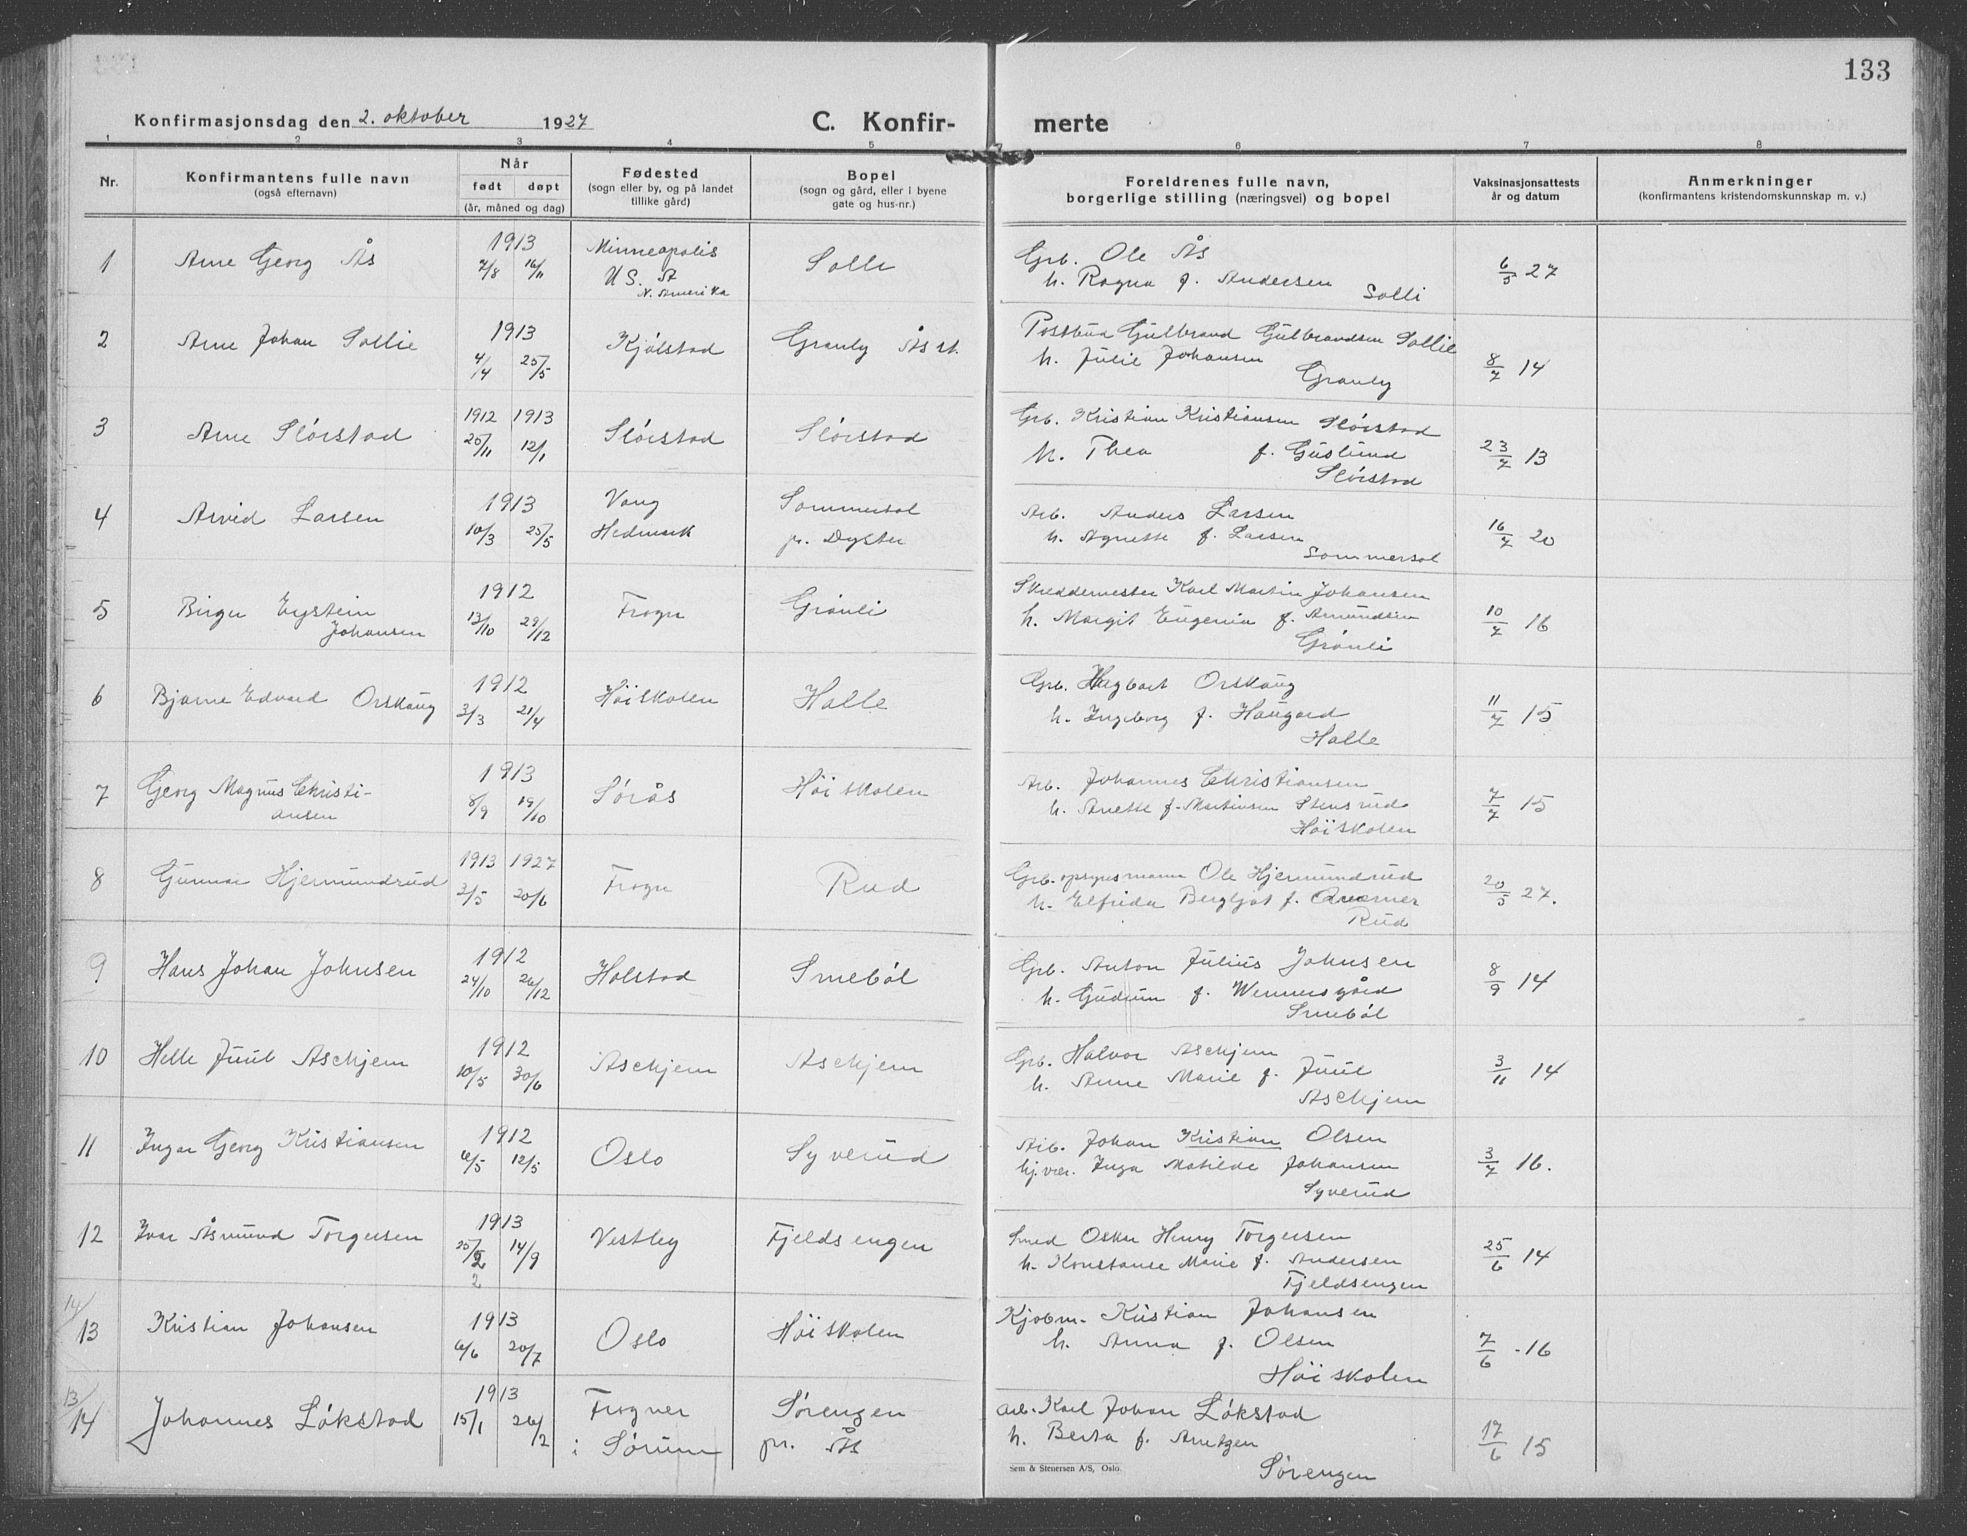 133
Konfirmasjonsdag den 2. oktober 1927
C. Konfir- merte
1 2 3 4 5 6 7 8
Nr.
Konfirmantens fulle navn
(også efternavn)
Når
født døpt
(år, måned og dag)
Fødested
(sogn eller by, og på landet
tillike gård)
Bopel
(sogn og gård, eller i byene
gate og hus-nr.)
Foreldrenes fulle navn,
borgerlige stilling (næringsvei) og bopel
Vaksinasjonsattests
år og datum
Anmerkninger
(konfirmantens kristendomskunnskap m. v.)
1 Arne Georg Ås 1913 7/8 16/11
Minneapolis
U S. A
N. Amerika
Solli
Grb. Ole Ås
h. Ragna f. Andersen
Solli
6/5 27
2 Arne Johan Sollie 1913 4/4 25/5
Kjølstad
Granly Ås st.
Postbud Gulbrand Gulbrandsen Sollie
h. Julie Johansen
Granly
8/7 14
3 Arne Slørstad 1912 1913 25/11 12/1
Slørstad
Slørstad
Grb. Kristian Kristiansen Slørstad
h. Thea f. Guslund
Slørstad
23/7 13
4 Arvid Larsen 1913 10/3 25/5
Vang
Hedmark
Sommersol
pr. Dyster
Arb. Anders Larsen
h. Agnette f. Larsen
Sommersol
16/7 20
5 Birger Eystein
Johansen
1912 13/10 29/12
Frogn
Grønli
Skreddermester Karl Martin Johansen
h. Margit Eugenia f. Amundsen
Grønli
10/7 16
6 Bjarne Edvard Orskaug 1912 3/3 21/4
Höiskolen
Holle
Grb. Hagbart Orskaug
h. Ingeborg f. Haugard
Holle
11/7 15
7 Georg Magnus Christi-
ansen
1913 8/9 19/10
Sørås
Höiskolen
Arb. Johannes Christiansen
h. Anette f. Martinsen Stensrud
Höiskolen
7/7 15
8 Gunnar Hjermundrud 1913 1927 2/5 20/6
Frogn
Rud
Grb. opsynsmann Ole Hjermundrud
h. Elfrida Bergljot f.
Rud
20/5 27.
9 Hans Johan Johnsen 1912 24/10 26/12
Holstad
Smebøl
Grb. Anton Julius Johnsen
h. Gudrun f. Wennersgård
Smebøl
8/9 14
10 Helle Juul Aschjem 1912 10/5 30/6
Aschjem
Aschjem
Grb. Halvor Aschjem
h. Anne Marie f. Juul
Aschjem
3/11 14
11 Ingar Georg Kristiansen 1912 6/5 12/5
Oslo
Syverud
Arb. Johan Kristian Olsen
hj.vær. Inga Matilde Johansen
Syverud
3/7 16.
12 Ivar Åsmund Torgersen 1913 25/2 14/9
2
Vestby
Fjeldsengen
Smed Oskar Henry Torgersen
h. Konstanse Marie f. Andersen
Fjeldsengen
25/6 14
14/13 Kristian Johansen 1913 6/6 20/7
Oslo
Höiskolen
Kjøbm. Kristian Johansen
h. Anna f. Olsen
Höiskolen
7/6 -16
13/14 Johannes Løkstad 1913 15/1 26/2
Frogner
i Sørum
Sørengen
pr. Ås
Arb. Karl Johan Løkstad
h. Berta f. Arntzen
Sørengen
17/6 15
Sem & Stenersen A/S, Oslo.